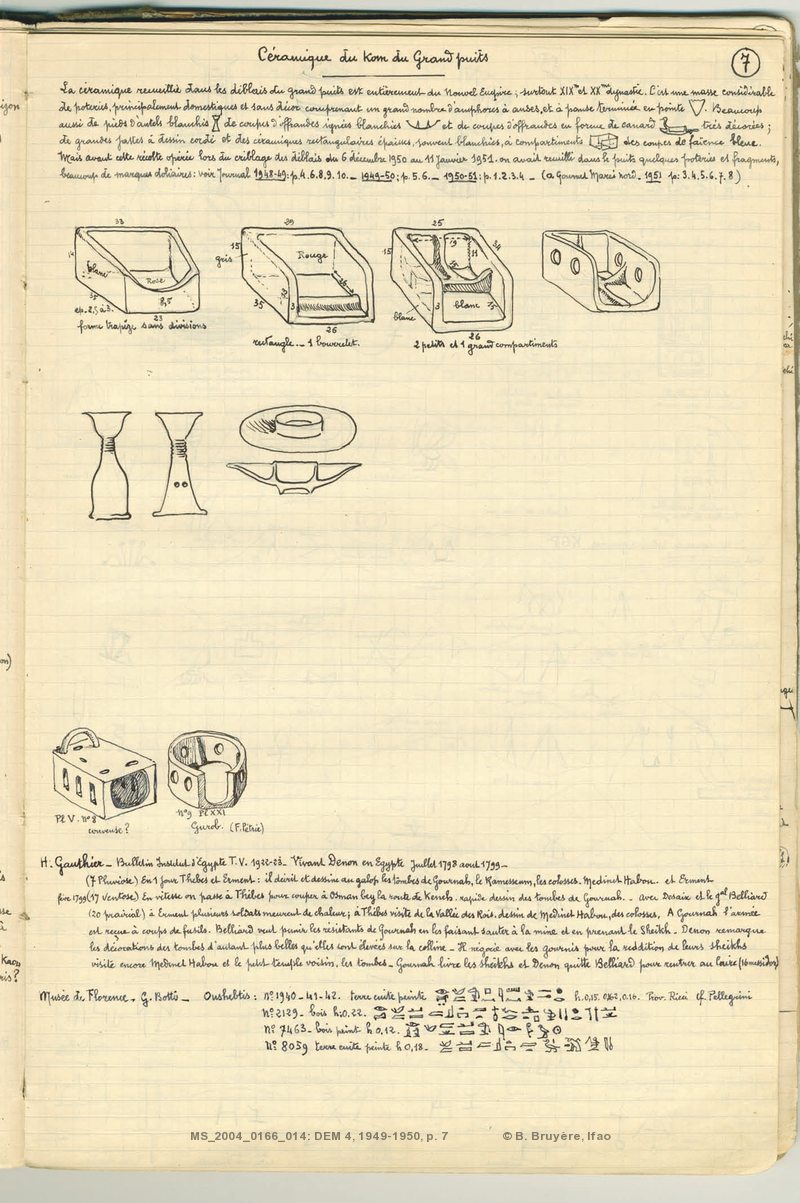 Céramique du Kom du Grand puits
7
La céramique recueillie dans les déblais du grand puits est entièrement du Nouvel Empire ; surtout XIXe et XXe dynastie. C'est une masse considérable
de poteries, principalement domestiques et sans décor comprenant un grand nombre d'amphores à anses, et à panse terminée en pointe . Beaucoup
aussi de pieds d'autels blanchis de coupes d'offrandes ignées blanchies et de coupes d'offrandes en forme de canard très décorées ;
de grandes jattes à dessin cordé et des céramiques rectangulaires épaisses, souvent blanchies, à compartiments des coupes de faïence bleue.
Mais avant cette récolte opérée lors du criblage des déblais du 6 décembre 1950 au 11 Janvier 1951. on avait recueilli dans le puits quelques poteries et fragments,
beaucoup de marques doliaires : voir Journal 1948-49 : p. 4.6.8.9.10. – 1949-50 ; p. 5.6. – 1950-51 : p. 1.2.3.4 – (a Gournet Mareï nord. 1951 p : 3.4.5.6.7.8)
33
blanc
Rose
35
8,5
ep. 2,5 à 3.
23
forme trapèze sans divisions
29
15
gris
Rouge
35
3
26
rectangle. – 1 bourrelet.
25
19
34
15
H
3
blanc
blanc
26
2 petits et 1 grand compartiments
Pl V. n° 8
couveuse ?
n° 9 Pl XXI
Gurob. (F. Petrie)
H. Gauthier – Bulletin Institut d'Egypte T. V. 1922-23 – Vivant Denon en Egypte Juillet 1798 aout 1799 –
(7 Pluviose) En 1 jour Thèbes et Erment : il décrit et dessine au galop les tombes de Gournah, le Ramesseum, les colosses. Medinet Habou. et Erment
1799 (17 Ventose) En vitesse on passe à Thèbes pour couper à Osman bey la route de Keneh. rapide dessin des tombes de Gournah. – Avec Desaix et le gal Belliard
(20 prairial) à Erment plusieurs soldats meurent de chaleur ; à Thèbes visite de la Vallée des Rois. dessin de Medinet Habou, des colosses, A Gournah l'armée
est reçue à coups de fusils. Belliard veut punir les résistants de Gournah en les faisant sauter à la mine et en prenant le Sheikh. Denon remarque
les décorations des tombes d'autant plus belles qu'elles sont élevées sur la colline – Il négocie avec les gournis pour la reddition de leurs sheikhs
visite encore Medinet Habou et le petit temple voisin, les tombes – Gournah livre les sheikhs et Denon quitte Belliard pour rentrer au Caire (16 messidor)
Musée de Florence. G. Botti – Oushebtis : n° 1940 – 41 – 42. terre cuite peinte h : 0,15. 0,162, 0,16. Prov. Ricci cf. Pellegrini
N° 2129 – bois h : 0.22.
N° 7463 – bois peint h 0,12.
N° 8059 terre cuite peinte h 0,18 –
MS_2004_0166_014: DEM 4, 1949-1950, p. 7 © B. Bruyère, Ifao